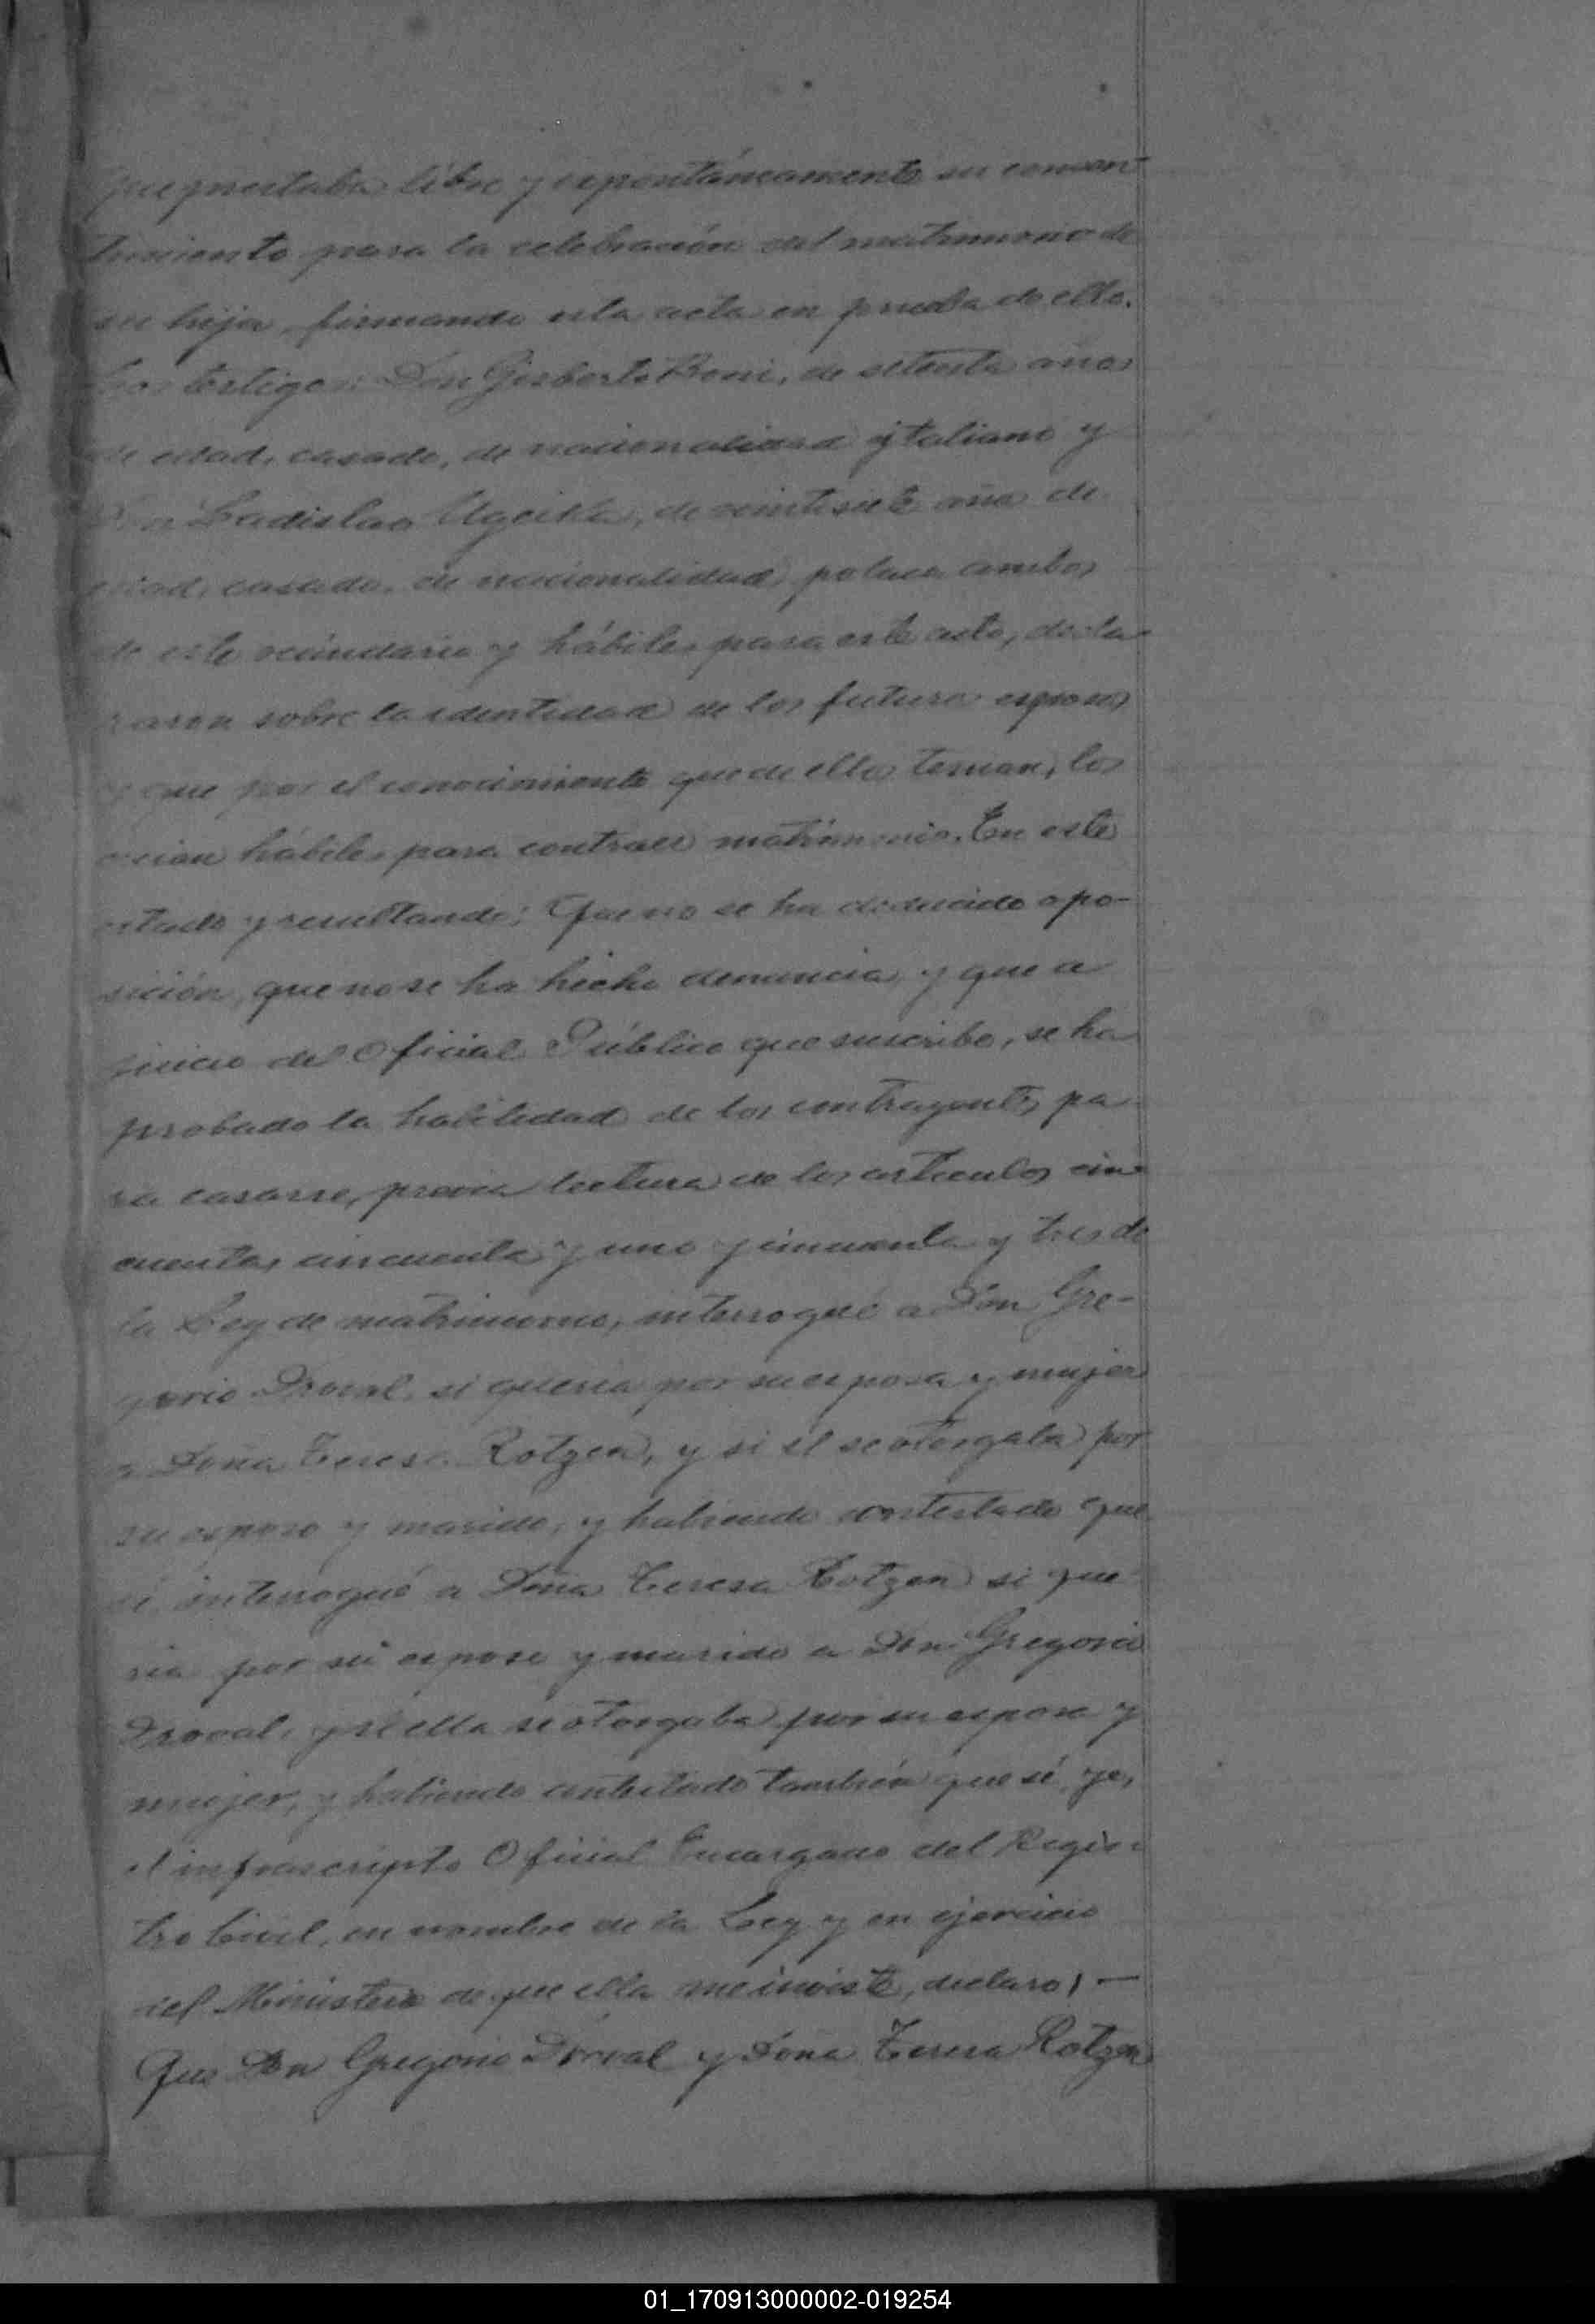 que prestaba libre y espontáneamente su consen-
timiento para la celebración del matrimonio de
su hija, firmando esta acta en prueba de ello.
Los testigos: Don Gisberto Boni, de setenta años
de edad, casado, de nacionalidad ytaliano y
Ladislao de veintisiete años de
edad, casado, de nacionalidad polaca ambos
de este vecindario y hábiles para este acto, decla-
raron sobre la identidad de los futuros esposos
y que por el conocimiento que de ellos tenian, los
creian hábiles para contraer matrimonio. En este
estado y resultando; Que no se ha deducido opo-
sición, que no se ha hecho denuncia, y que a
juicio del Oficial Público que suscribe, se ha
probado la habilidad de los contrayentes pa-
ra casarse, previa lectura de los artículos cin-
cuenta, cincuenta y uno y cincuenta y tres de
la Ley de matrimonio, interrogué a Don Gre-
gorio Droval, si queria por su esposa y mujer
a Doña Teresa Rotzen, y si él se otorgaba por
su esposo y marido, y habiendo contestado que
sí, interrogué a Doña Teresa Rotzen si que-
ria por su esposo y marido a Don Gregorio
Droval, y si ella se otorgaba por su esposa y
mujer, y habiendo contestado también que sí, yo,
el infrascripto Oficial Encargado del Regis-
tro Civil, en nombre de la Ley y en ejercicio
del Ministerio de que ella me inviste, declaro; —
Que Don Gregorio Droval y Doña Teresa Rotzen
01_170913000002-019254